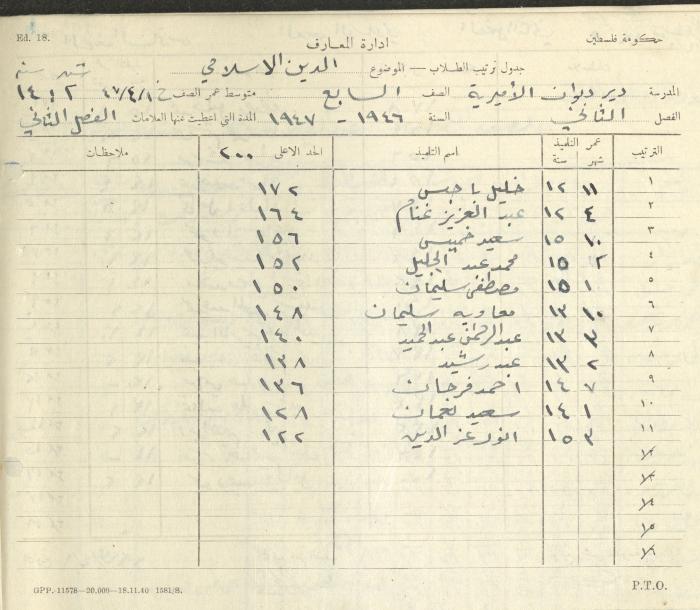 Ed. 18.
حكومة فلسطين
ادارة المعارف
جدول ترتيب الطلاب — الموضوع الدين الاسلامي
المدرسة دير ديوان الأميرية الصف السابع متوسط عمر الصف في ٤٧/٤/١ شهر ٢ سنة ١٤
الفصل الثاني السنة ١٩٤٦ - ١٩٤٧ المدة التي اعطيت عنها العلامات الفصل الثاني
الترتيب عمر التلميذ شهر سنة اسم التلميذ الحد الاعلى ٢٠٠ ملاحظات
١ ١١ ١٢ خليل ياحس ١٧٢
٢ ٤ ١٢ عبد العزيز غنام ١٦٤
٣ ١٠ ١٥ سعيد خميس ١٥٦
٤ ٢ ١٥ محمد عبد الجليل ١٥٢
٥ ١ ١٥ مصطفى سليمان ١٥٠
٦ ١٠ ١٣ معاويه سليمان ١٤٨
٧ ٣ ١٣ عبد الرحمن عبد الحميد ١٤٠
٨ ٢ ١٣ عبد رشيد ١٣٨
٩ ٧ ١٤ احمد فرحات ١٣٦
١٠ ١ ١٤ سعيد نعمان ١٢٨
١١ ٣ ١٥ انور عز الدين ١٢٢
١٢
١٣
١٤
١٥
١٦
GPP. 11578—20.000—18.11.40 1581/S.
P.T.O.